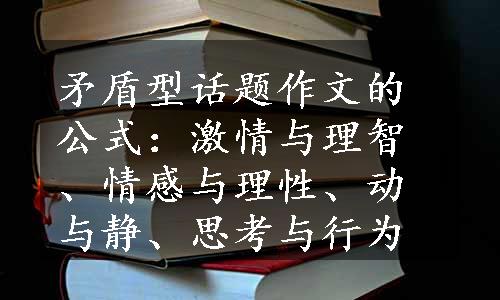 矛盾型话题作文的
公式：激情与理智
、情感与理性、动
与静、思考与行为